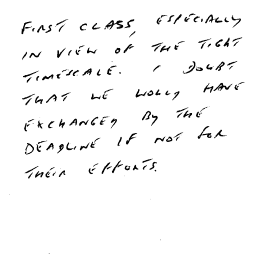 FIRST CLASS, ESPECIALLY
IN VIEW OF THE TIGHT
TIMESCALE. I DOUBT
THAT WE WOULD HAVE
EXCHANGED BY THE
DEADLINE IF NOT FOR
THEIR EFFORTS.